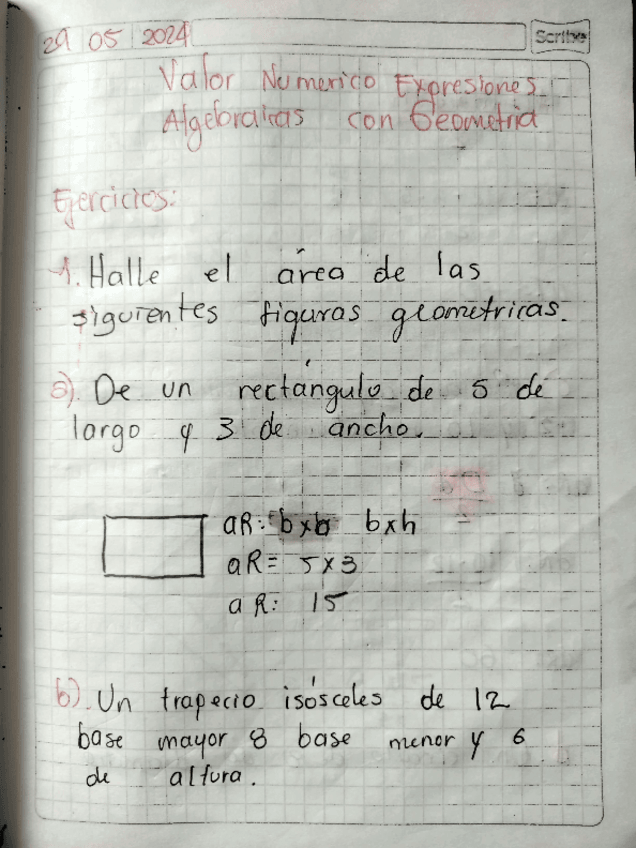 29 05 2024
Scribe
Valor Numerico Expresiones
Algebraicas con Geometria
Ejercicios:
1. Halle el área de las
siguientes figuras geometricas.
a). De un rectángulo de 5 de
largo y 3 de ancho.
aR: bxb bxh
aR= 5x3
aR: 15
b). Un trapecio isósceles de 12
base mayor 8 base menor y 6
de altura.